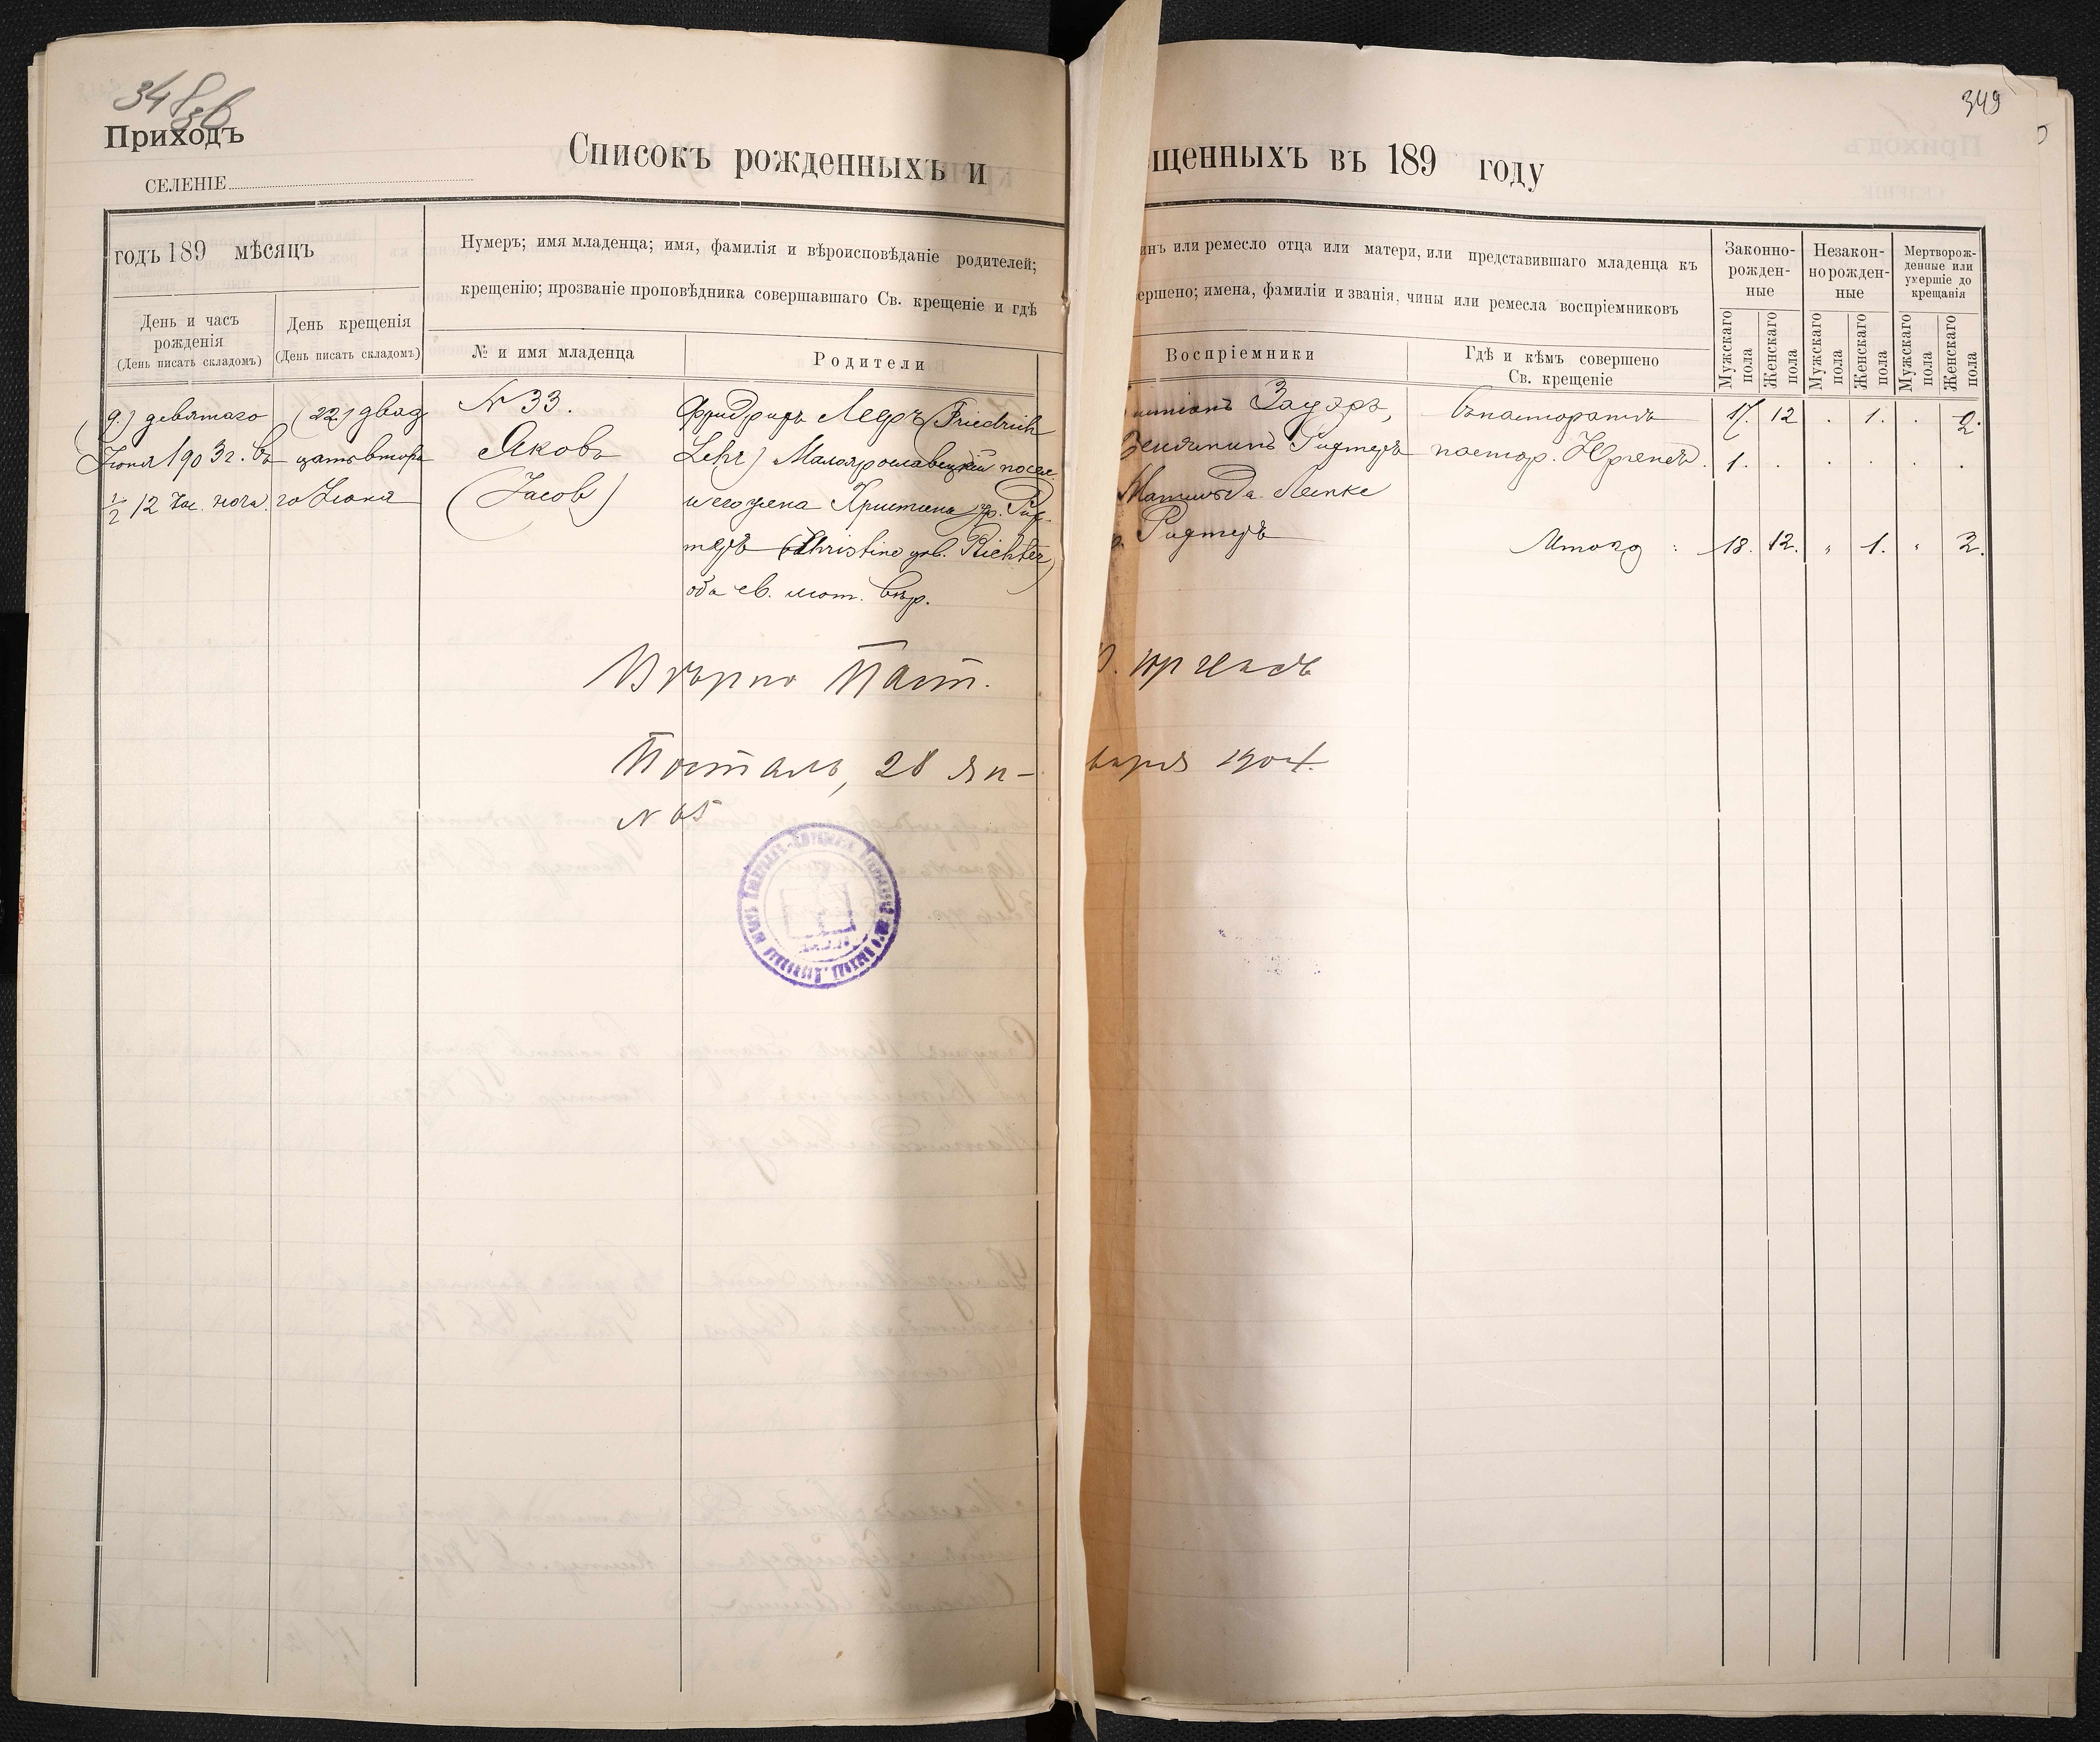 348 об
Приходъ
СЕЛЕНІЕ
Списокъ рожденныхъ и
годъ 189 мѣсяцъ
День и часъ рожденія
(День писать складомъ)
День крещенія
(День писать складомъ)
Нумеръ; имя младенца; имя, фамилія и вѣроисповѣданіе родителей;
крещенію; прозваніе проповѣдника совершавшаго Св. крещеніе и гдѣ
№ и имя младенца
Родители
9.) девятаго
Іюня 1903г. въ
½ 12 час. ночи.
(22) двад
цать втора
го Іюня
N 33.
Яковъ
(Jacob)
Фридрихъ Леръ (Friedrich
Lehr) Малоярославецкій посел.
и его жена Христина ур. Рих-
теръ (Christine geb. Richter)
оба ев. лют. вѣр.
Вѣрно Паст.
Посталь, 28 ян-
N 65
349
щенныхъ въ 189 году
инъ или ремесло отца или матери, или представившаго младенца къ
ершено; имена, фамиліи и званія, чины или ремесла воспріемниковъ
Воспріемники
Гдѣ и кѣмъ совершено
Св. крещеніе
Законно-
рожден-
ные
Незакон-
норожден-
ные
Мертворож-
денные или
умершіе до
крещанія
Мужскаго пола
Женскаго пола
Мужскаго пола
Женскаго пола
Мужскаго пола
Женскаго пола
Зауэръ,
Рихтеръ
Матильда Лемке
Рихтеръ
въ пасторатѣ
пастор. Юргенсъ.
17. 12 . 1. . 2.
1. . . . . .
Итого : 18. 12. „ 1. „ 2.
Юргенсъ
варя 1904.